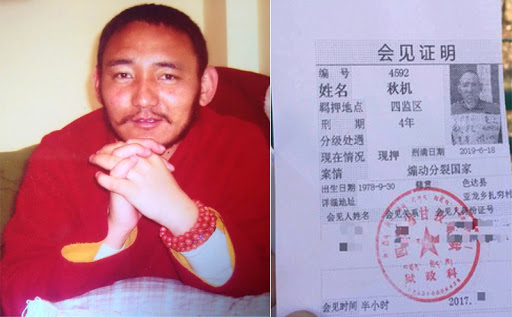 会见证明
编 号 4592
姓名 秋机
羁押地点 四监区
刑 期 4年
分级处遇
现在情况 现押 刑满日期 2019-6-18
案情 煽动分裂国家
出生日期 1978-9-30 籍贯 色达县
详细地址 亚龙乡扎穷村
会见人姓名 会见关系 会见人身份证号
狱政科
会见时间 半小时 2017.